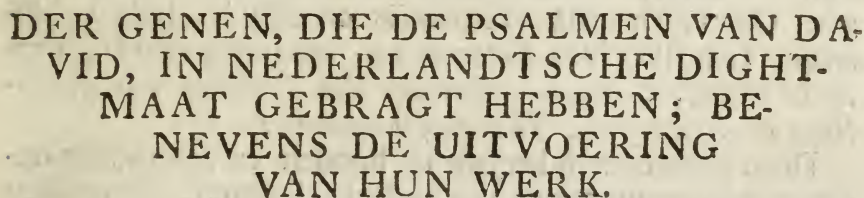 DER GENEN, DIE DE PSALMEN VAN DA-
VID, IN NEDERLANDTSCHE DIGHT-
MAAT GEBRAGT HEBBEN; BE-
NEVENS DE UITVOERING
VAN HUN WERK.